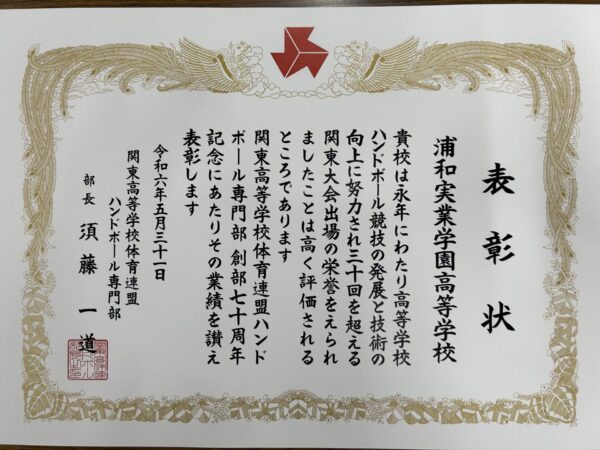 表彰状
浦和実業学園高等学校
貴校は永年にわたり高等学校
ハンドボール競技の発展と技術の
向上に努力され三十回を超える
関東大会出場の栄誉をえられ
ましたことは高く評価される
ところであります
関東高等学校体育連盟ハンド
ボール専門部創部七十周年
記念にあたりその業績を讃え
表彰します
令和六年五月三十一日
関東高等学校体育連盟
ハンドボール専門部
部長 須藤一道